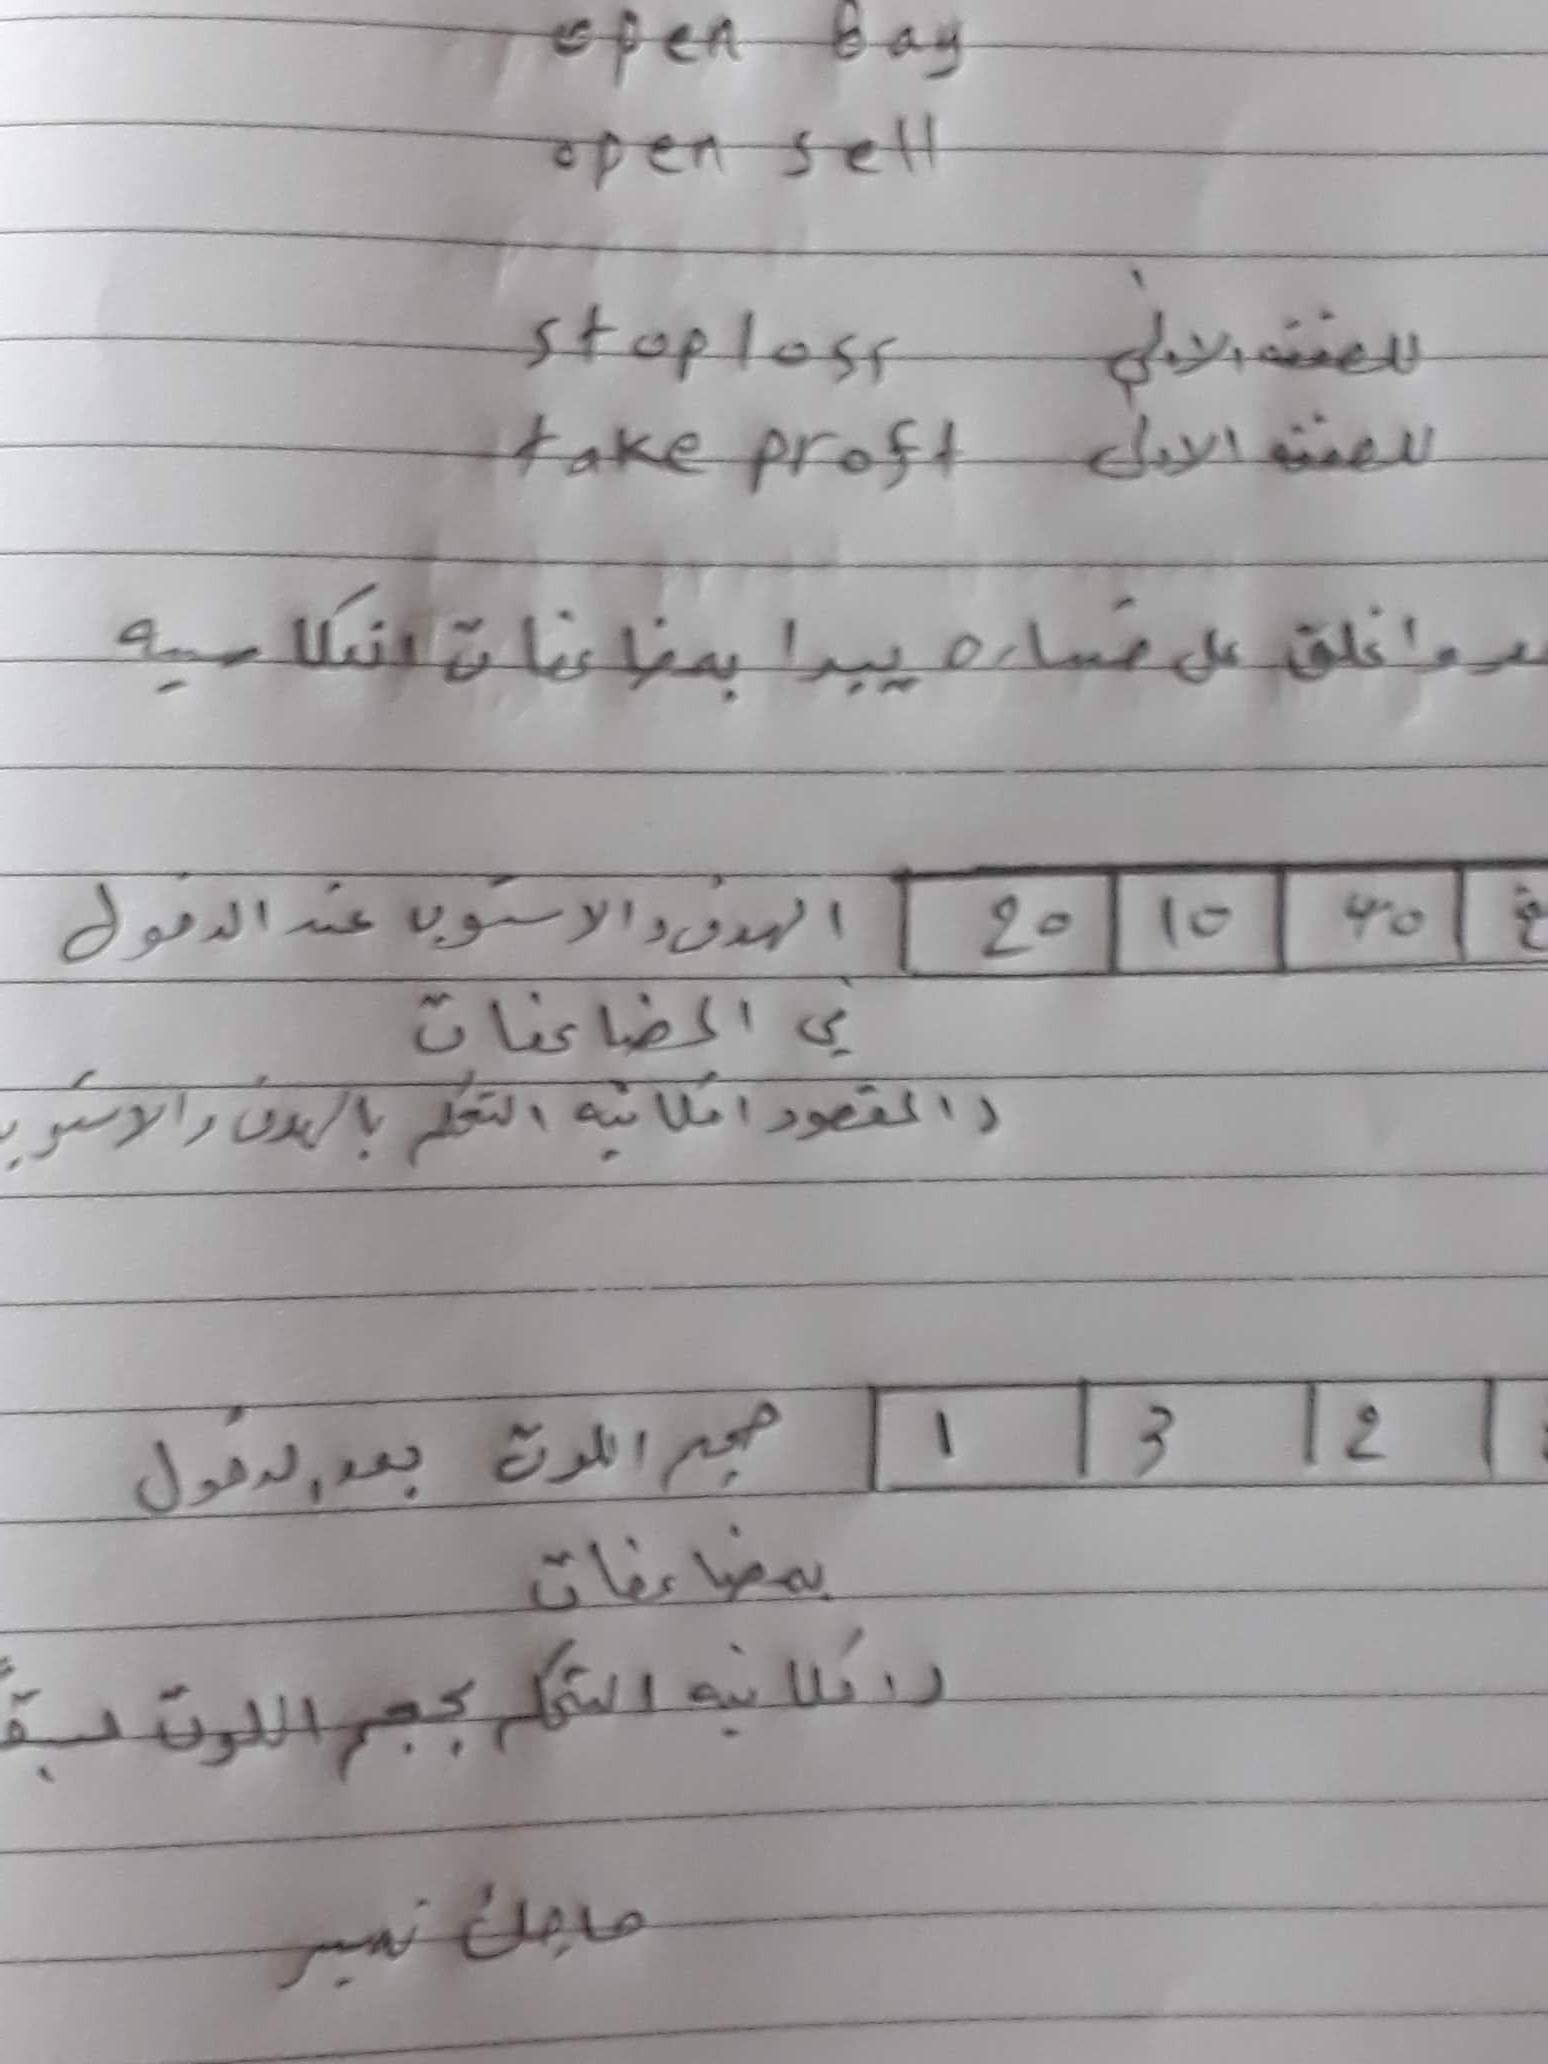 open bay
open sell
stop loss للصفقه الاولي
take proft للصفقه الاولى
واغلق على خساره يبدا بمضاعفات انعكاسيه
40 10 20 الهدف والاستوب عند الدخول
في المضاعفات
والمقصود امكانيه التحكم بالهدف والاستوب
2 3 1 حجم اللوت بعد الدخول
بمضاعفات
وامكانيه التحكم بحجم اللوت